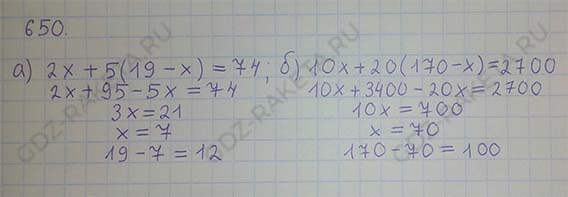 650.
а) 2x + 5(19 - x) = 74; б) 10x + 20(170 - x) = 2700
2x + 95 - 5x = 74 10x + 3400 - 20x = 2700
3x = 21 10x = 700
x = 7 x = 70
19 - 7 = 12 170 - 70 = 100
GDZ-RAKETA.RU
GDZ-RAKETA.RU
GDZ-RAKETA.RU